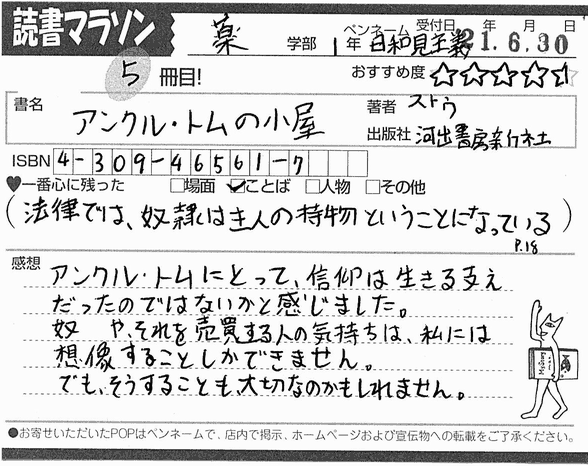 読書マラソン
薬 学部 1年 ペンネーム 日和見主義 受付日 年 月 日 21.6.30
5 冊目! おすすめ度 ☆☆☆☆☆
書名 アンクル・トムの小屋 著者 ストウ
出版社 河出書房新社
ISBN 4-309-46561-7
♥一番心に残った □場面 ☑ことば □人物 □その他
(法律では、奴隷は主人の持物ということになっている)
P.18
感想 アンクル・トムにとって、信仰は生きる支え
だったのではないかと感じました。
奴 や、それを売買する人の気持ちは、私には
想像することしかできません。
でも、そうすることも大切なのかもしれません。
●お寄せいただいたPOPはペンネームで、店内で掲示、ホームページおよび宣伝物への転載をご了承ください。